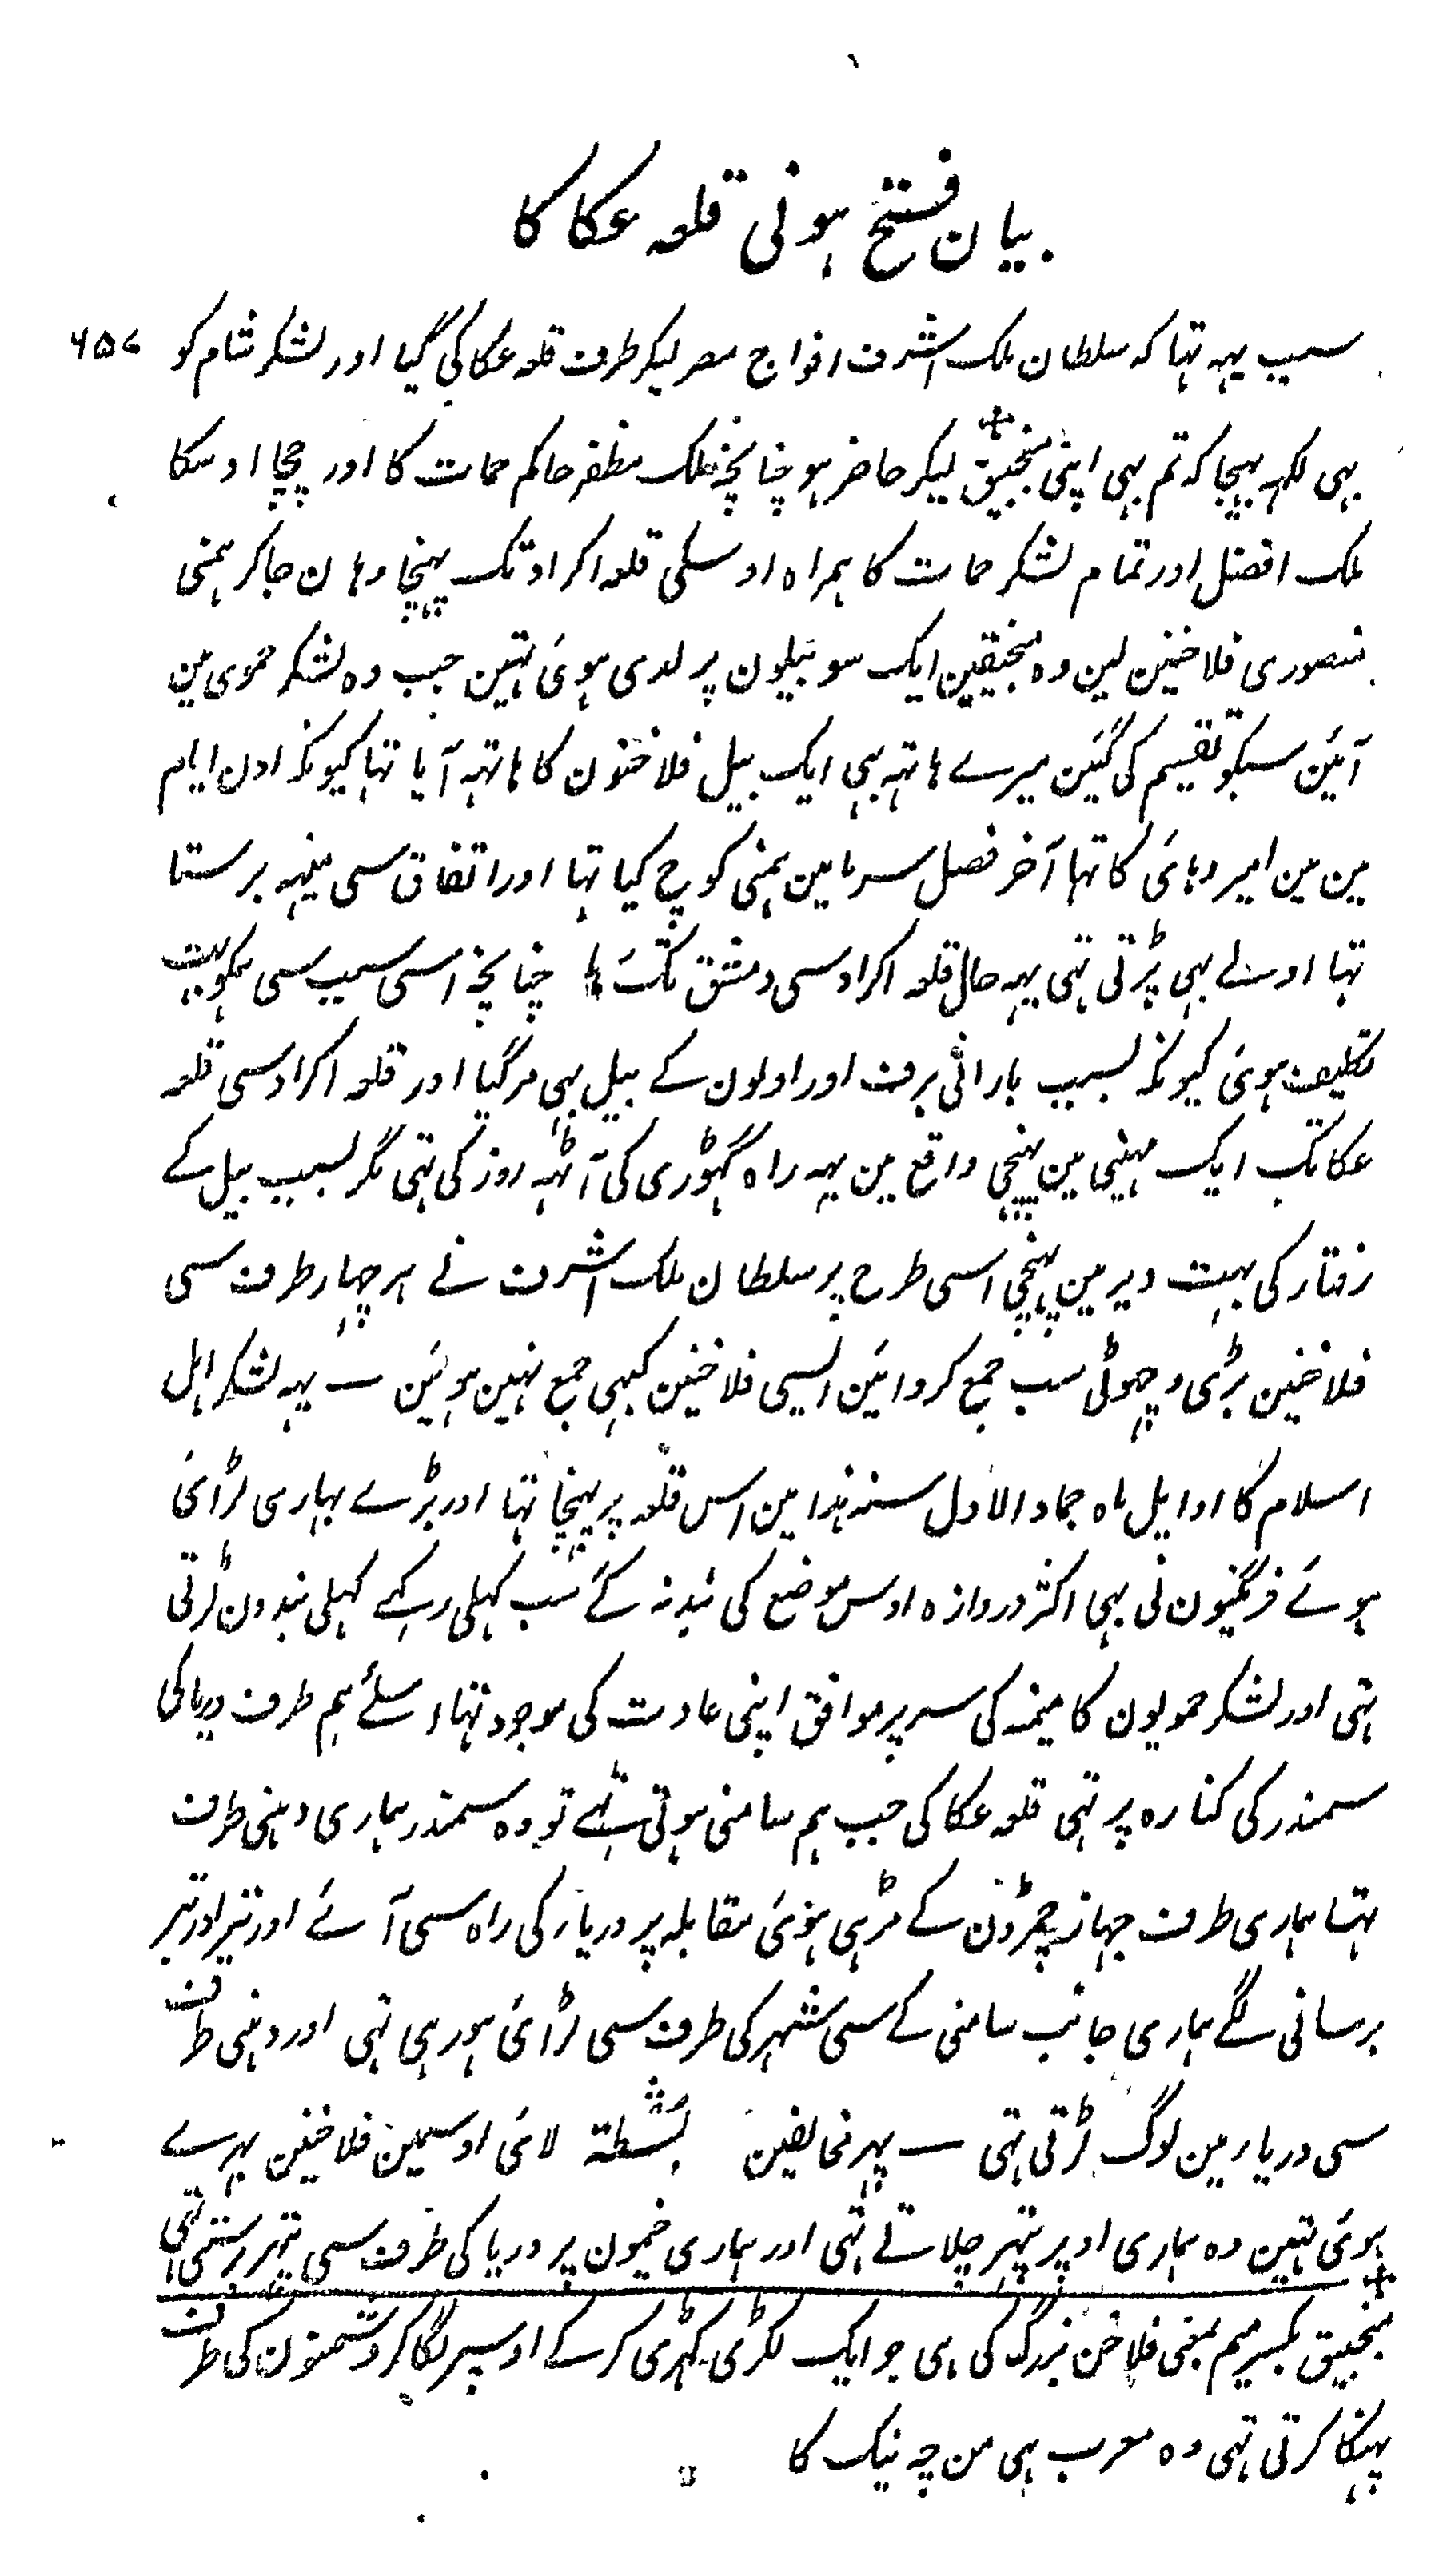 بیان فتح ہونی قلعہ عکا کا
سبب یہہ تہا کہ سلطان ملک اشرف افواج مصر لیکر طرف قلعہ عکا کی گیا اور لشکر شام کو ۶۵۷
بہی لکہہ بہیجا کہ تم بہی اپنی منجنیق لیکر حاضر ہو چنانچہ ملک مظفر حاکم حمات کا اور چچا اوسکا
ملک افضل اور تمام لشکر حمات کا ہمراہ اوسکی قلعہ اکراد تک پہنچا وہان جاکر ہمنی
منصوری فلاخنین لین وہ منجنیقین ایک سو بیلون پر لدی ہوئی تہین جب وہ لشکر حموی مین
آئین سبکو تقسیم کی گئین میرے ہاتہہ بہی ایک بیل فلاخنون کا ہاتہہ آیا تہا کیونکہ اون ایام
مین مین امیر دہائی کا تہا آخر فصل سرما مین ہمنی کوچ کیا تہا اور اتفاق سی مینہہ برستا
تہا اولے بہی پڑتی تہی یہہ حال قلعہ اکراد سی دمشق تک رہا چنانچہ اسی سبب سی ہمکو بہت
تکلیف ہوئی کیونکہ بسبب بارانی برف اور اولون کے بیل بہی مرگیا اور قلعہ اکراد سی قلعہ
عکا تک ایک مہینی مین پہنچی واقع مین یہہ راہ گہوڑی کی آٹہہ روز کی تہی مگر بسبب بیل کے
رفتار کی بہت دیر مین پہنچی اسی طرح پر سلطان ملک اشرف نے ہر چہار طرف سی
فلاخنین بڑی و چہوٹی سب جمع کروائین ایسی فلاخنین کبہی جمع نہین ہوئین ــ یہہ لشکر اہل
اسلام کا اوایل ماہ جماد الاول سنہ ہذا مین اس قلعہ پر پہنچا تہا اور بڑے بہاری لڑائی
ہوئے فرنگیون نی بہی اکثر دروازہ اوس موضع کی بند نہ کے سب کہلی رکہے کہلی بندون لڑتی
تہی اور لشکر حمویون کا میمنہ کی سر پر موافق اپنی عادت کی موجود تہا اسلئے ہم طرف دریا کی
سمندر کی کنارہ پر تہی قلعہ عکا کی جب ہم سامنی ہوتی تہے تو وہ سمندر ہماری دہنی طرف
تہا ہماری طرف جہاز چمڑون کے مڑہی ہوئی مقابلہ پر دریا کی راہ سی آئے اور تیر اور تبر
برسانی لگے ہماری جانب سامنی کے سی شہر کی طرف سی لڑائی ہورہی تہی اور دہنی طرف
سی دریا مین لوگ لڑتی تہی ــ پہر مخالفین بُسْطَۃ لائی اوسمین فلاخنین بہرے
ہوئی تہین وہ ہماری اوپر پتہر چلاتے تہی اور ہماری خیمون پر دریا کی طرف سی پتہر برستی تہی
منجنیق بکسر میم بمعنی فلاخن بزرگ کی ہی جو ایک لکڑی کہڑی کر کے اوسپر لگا کر دشمنون کی طرف
پہینکا کرتی تہی وہ معرب ہی من چہ نیک کا